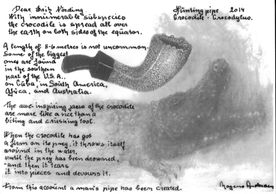 Dear Erik Nording
Hunting pipe. 2014
Crocodile - Crocodylus.
With innumerable subspecies
the crocodile is spread all over
the earth on both sides of the equator.
A length of 5-6 metres is not uncommon.
Some of the biggest
ones are found
in the southern
part of the U.S.A.,
on Cuba, in South America,
Africa, and Australia.
The awe inspiring jaws of the crocodile
are more like a vice than a
biting and crushing tool.
When the crocodile has got
a firm on its prey, it throws itself
around in the water,
until the prey has been drowned,
and then it tears
it into pieces and devours it.
From this ancient a man's pipe has been created.
Mogens Andersen